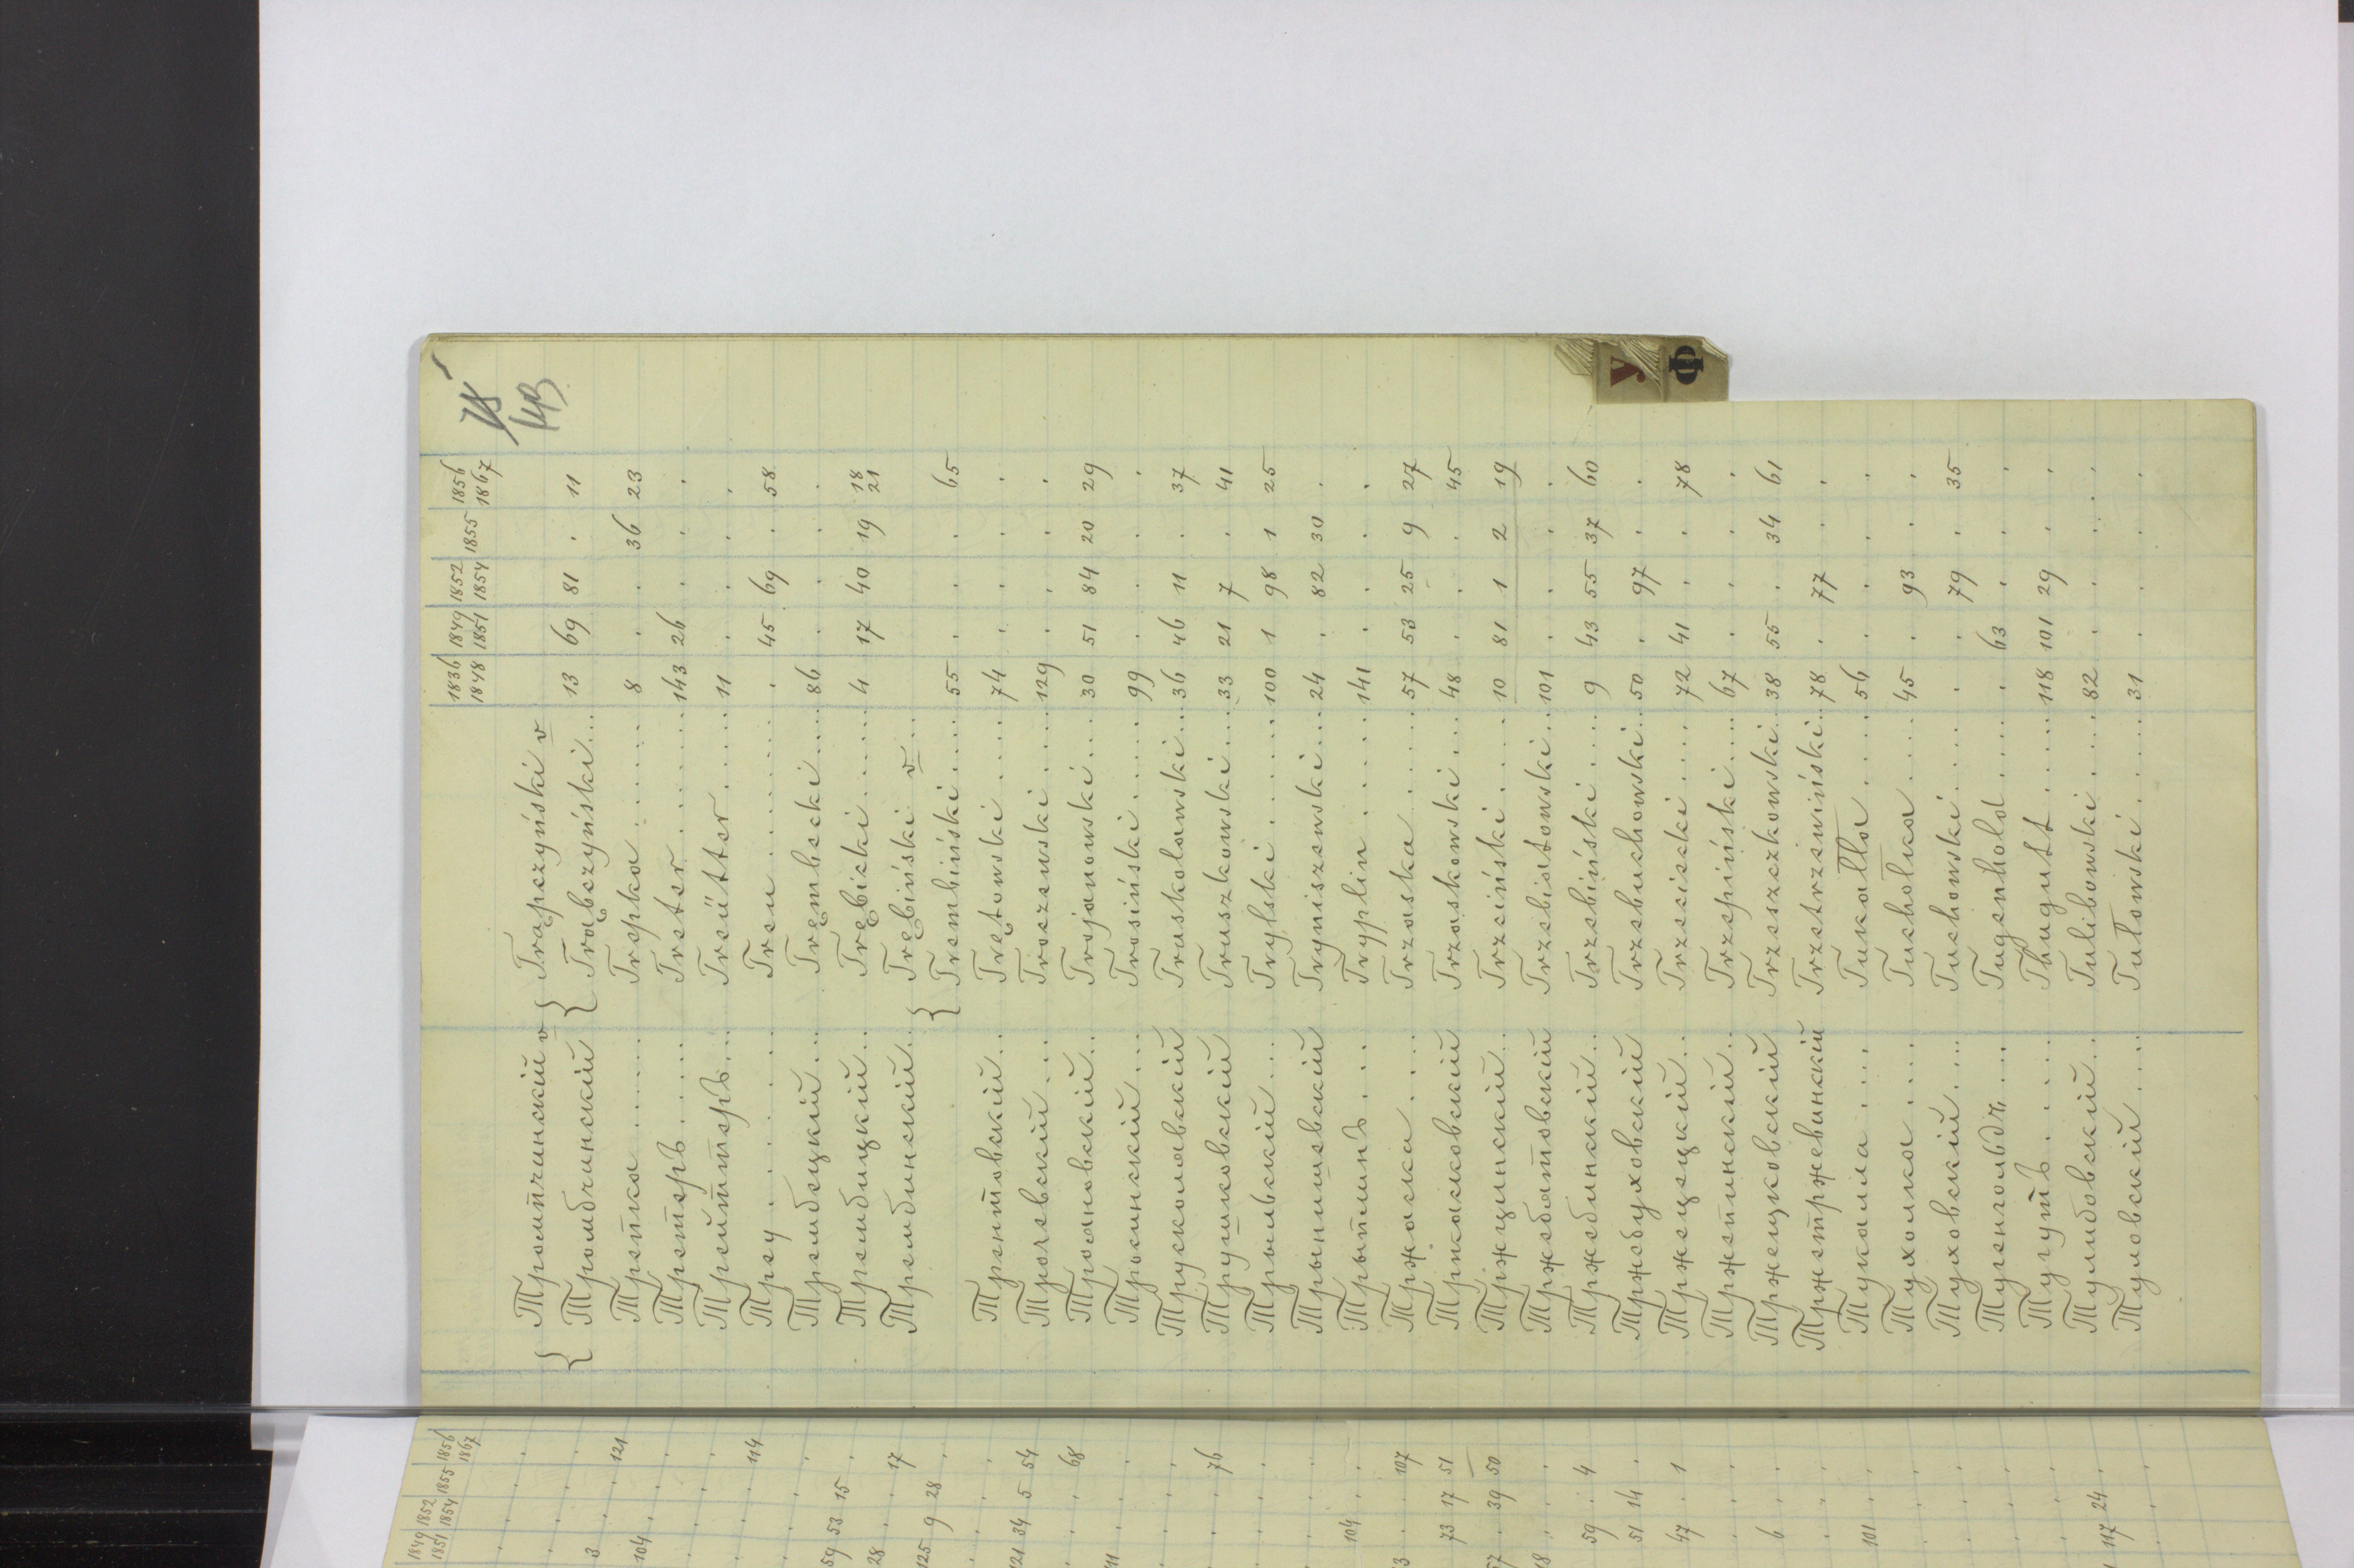 143
1836 1849 1852 1855 1856
1848 1851 1854 1867
{ Тромпчинскій v { Trąpczyński v
{ Тромбчинскій { Trąbczyński... 13 69 81 . 11
Трепка ...... Trepka ...... 8 . . 36 23
Третеръ ...... Treter ...... 143 26 . . .
Трейттеръ.... Treütter ..... 11 . . . .
Треу ........ Treu ........ . 45 69 . 58
Трембецкій.... Trembecki .... 86 . . . .
Трембицкій... Trębicki ..... 4 17 40 19 18 21
Трембинскій... { Trębiński v...
{ Trembiński .... 55 . . . 65
Трентовскій... Trętowski .... 74 . . . .
Трочевскій .... Troczewski .... 129 . . . .
Трояновскій... Trojanowski .... 30 51 84 20 29
Тросинскій .... Trosiński ..... 99 . . . .
Трусколавскій Truskolawski... 36 46 11 . 37
Трушковскій Truszkowski... 33 21 7 . 41
Трыльскій .... Trylski ...... 100 1 98 1 25
Трынишевскій Tryniszewski... 24 . 82 30 .
Трыплинъ .... Tryplin ..... 141 . . . .
Тржаска ..... Trzaska ..... 57 53 25 9 27
Тржасковскій Trzaskowski .... 48 . . . 45
Тржцинскій.. Trzciński ..... 10 81 1 2 19
Тржебятовскій Trzebiatowski... 101 . . . .
Тржебинскій.. Trzebiński ..... 9 43 55 37 60
Тржебуховскій Trzebuchowski... 50 . 97 . .
Тржецецкій.. Trzeciecki ..... 72 41 . . 78
Тржепинскій.. Trzepiński .... 67 . . . .
Тржещковскій Trzeszczkowski. 38 55 . 34 61
Тржетржевинскій Trzetrzewiński.. 78 . 77 . .
Тукалла ..... Tukałła ..... 56 . . . .
Тухолка ..... Tuchołka ..... 45 . 93 . .
Туховскій .... Tuchowski ..... . . 79 . 35
Тугенгольдъ .... Tugenhold ..... . 63 . . .
Тугутъ ..... Thugutt ..... 118 101 29 . .
Тулибовскій... Tulibowski .... 82 . . . .
Туловскій .... Tułowski ..... 31 . . . .
1849 1852 1855 1856
1851 1854 1867
3 121
104
114
59 53 15
28 17
125 9 28
121 34 5 54
68
76
104
107
73 17 51
39 50
59 4
51 14
47 1
6
101
117 24